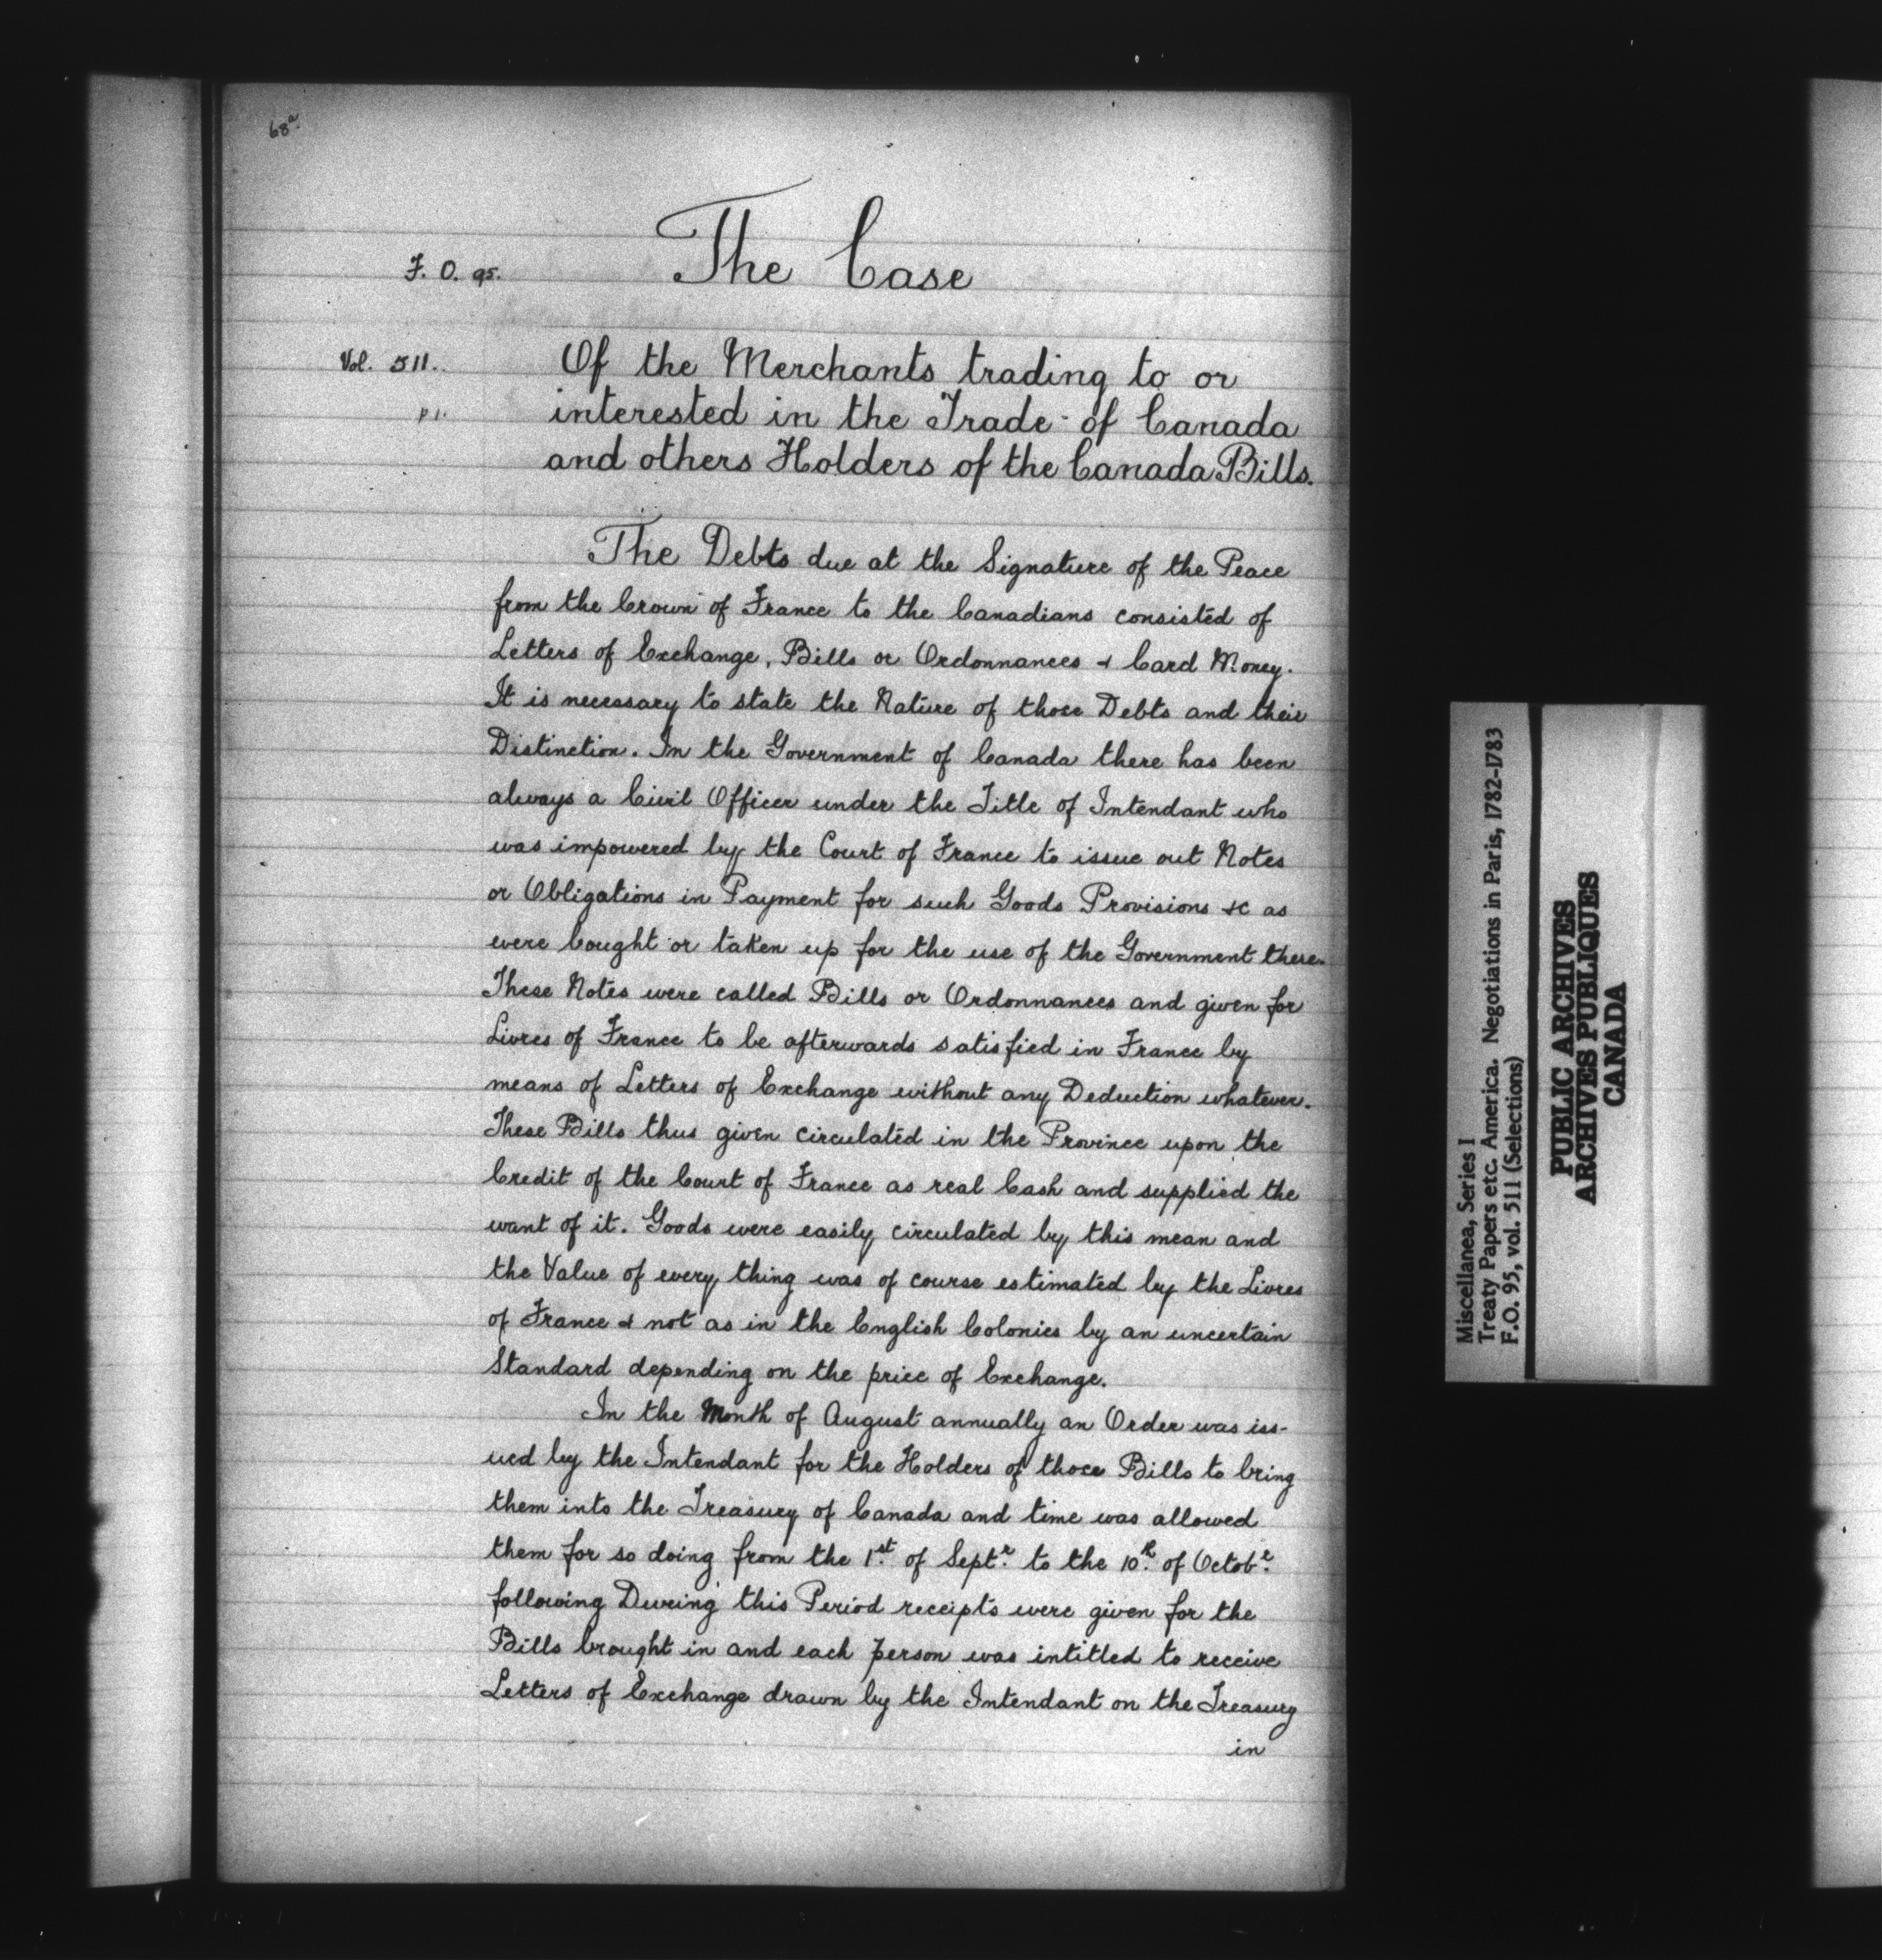 68a.
The Case
F. O. 95.
Vol. 511.
p 1.
Of the Merchants trading to or
interested in the Trade of Canada
and others Holders of the Canada Bills.
The Debts due at the Signature of the Peace
from the Crown of France to the Canadians consisted of
Letters of Exchange, Bills or Ordonnances & Card Money.
It is necessary to state the Nature of those Debts and their
Distinction. In the Government of Canada there has been
always a Civil Officer under the Title of Intendant who
was impowered by the Court of France to issue out Notes
or Obligations in Payment for such Goods Provisions &c as
were bought or taken up for the use of the Government there.
These Notes were called Bills or Ordonnances and given for
Livres of France to be afterwards satisfied in France by
means of Letters of Exchange without any Deduction whatever.
These Bills thus given circulated in the Province upon the
Credit of the Court of France as real Cash and supplied the
want of it. Goods were easily circulated by this mean and
the Value of every thing was of course estimated by the Livres
of France & not as in the English Colonies by an uncertain
Standard depending on the price of Exchange.
In the Month of August annually an Order was iss-
ued by the Intendant for the Holders of those Bills to bring
them into the Treasury of Canada and time was allowed
them for so doing from the 1st. of Septr. to the 10th. of Octobr.
following During this Period receipts were given for the
Bills brought in and each person was intitled to receive
Letters of Exchange drawn by the Intendant on the Treasury
in
Miscellanea, Series I
Treaty Papers etc. America. Negotiations in Paris, 1782-1783
F.O. 95, vol. 511 (Selections)
PUBLIC ARCHIVES
ARCHIVES PUBLIQUES
CANADA